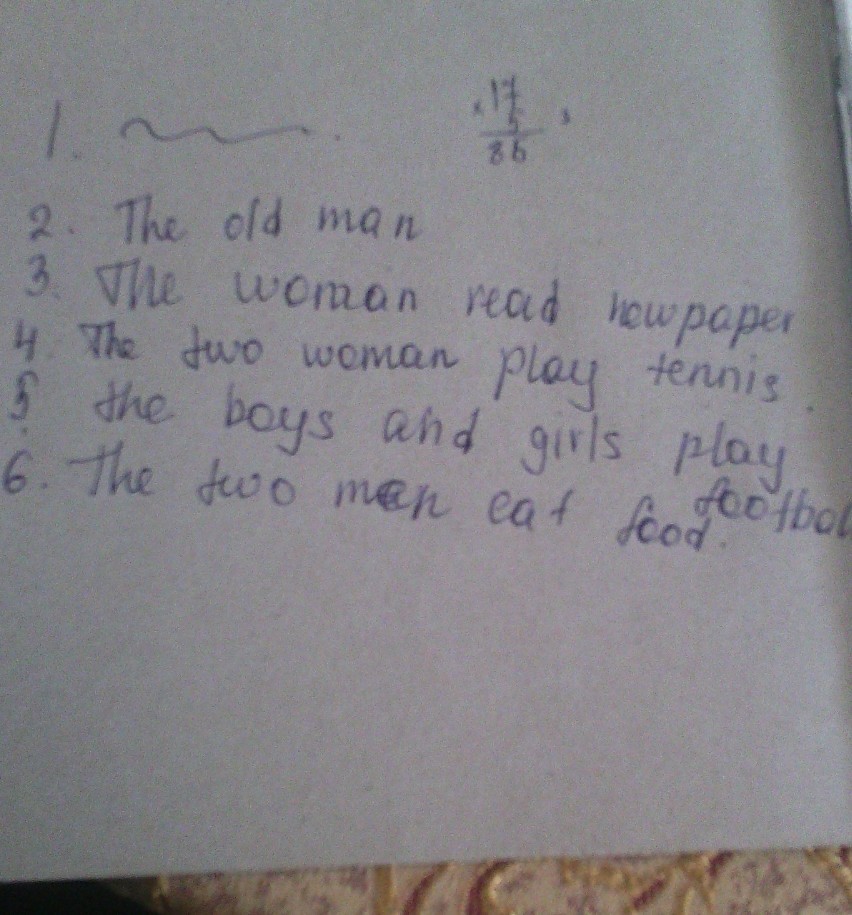 1.
17
5
86
2. The old man
3. The woman read newpaper
4. The two woman play tennis.
5. the boys and girls play
footbol
6. The two men eat food.